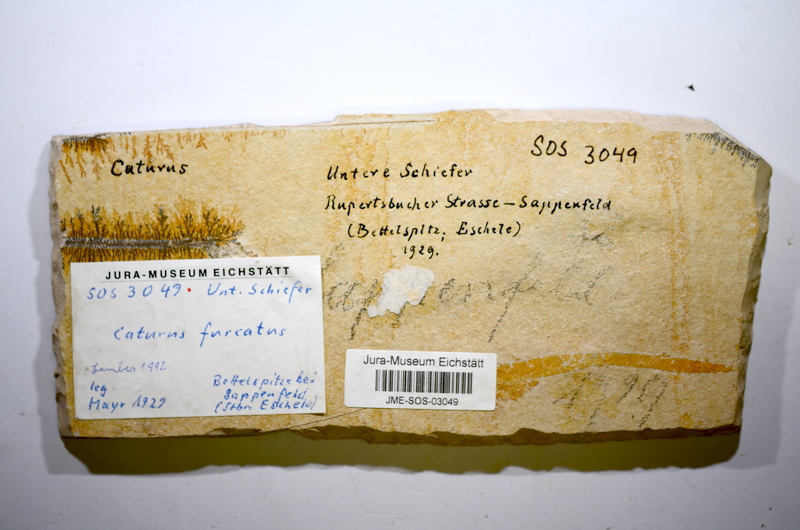 Caturus
Untere Schiefer
Rupertsbucher Strasse - Sappenfeld
(Bettelspitz, Eschele)
1929.
SOS 3049
JURA-MUSEUM EICHSTÄTT
SOS 3049 • Unt. Schiefer
Caturus furcatus
Lambers 1992
leg.
Mayr 1929
Bettelspitze bei
Sappenfeld
(Stbr. Eschele)
Sappenfeld
1929
Jura-Museum Eichstätt
JME-SOS-03049